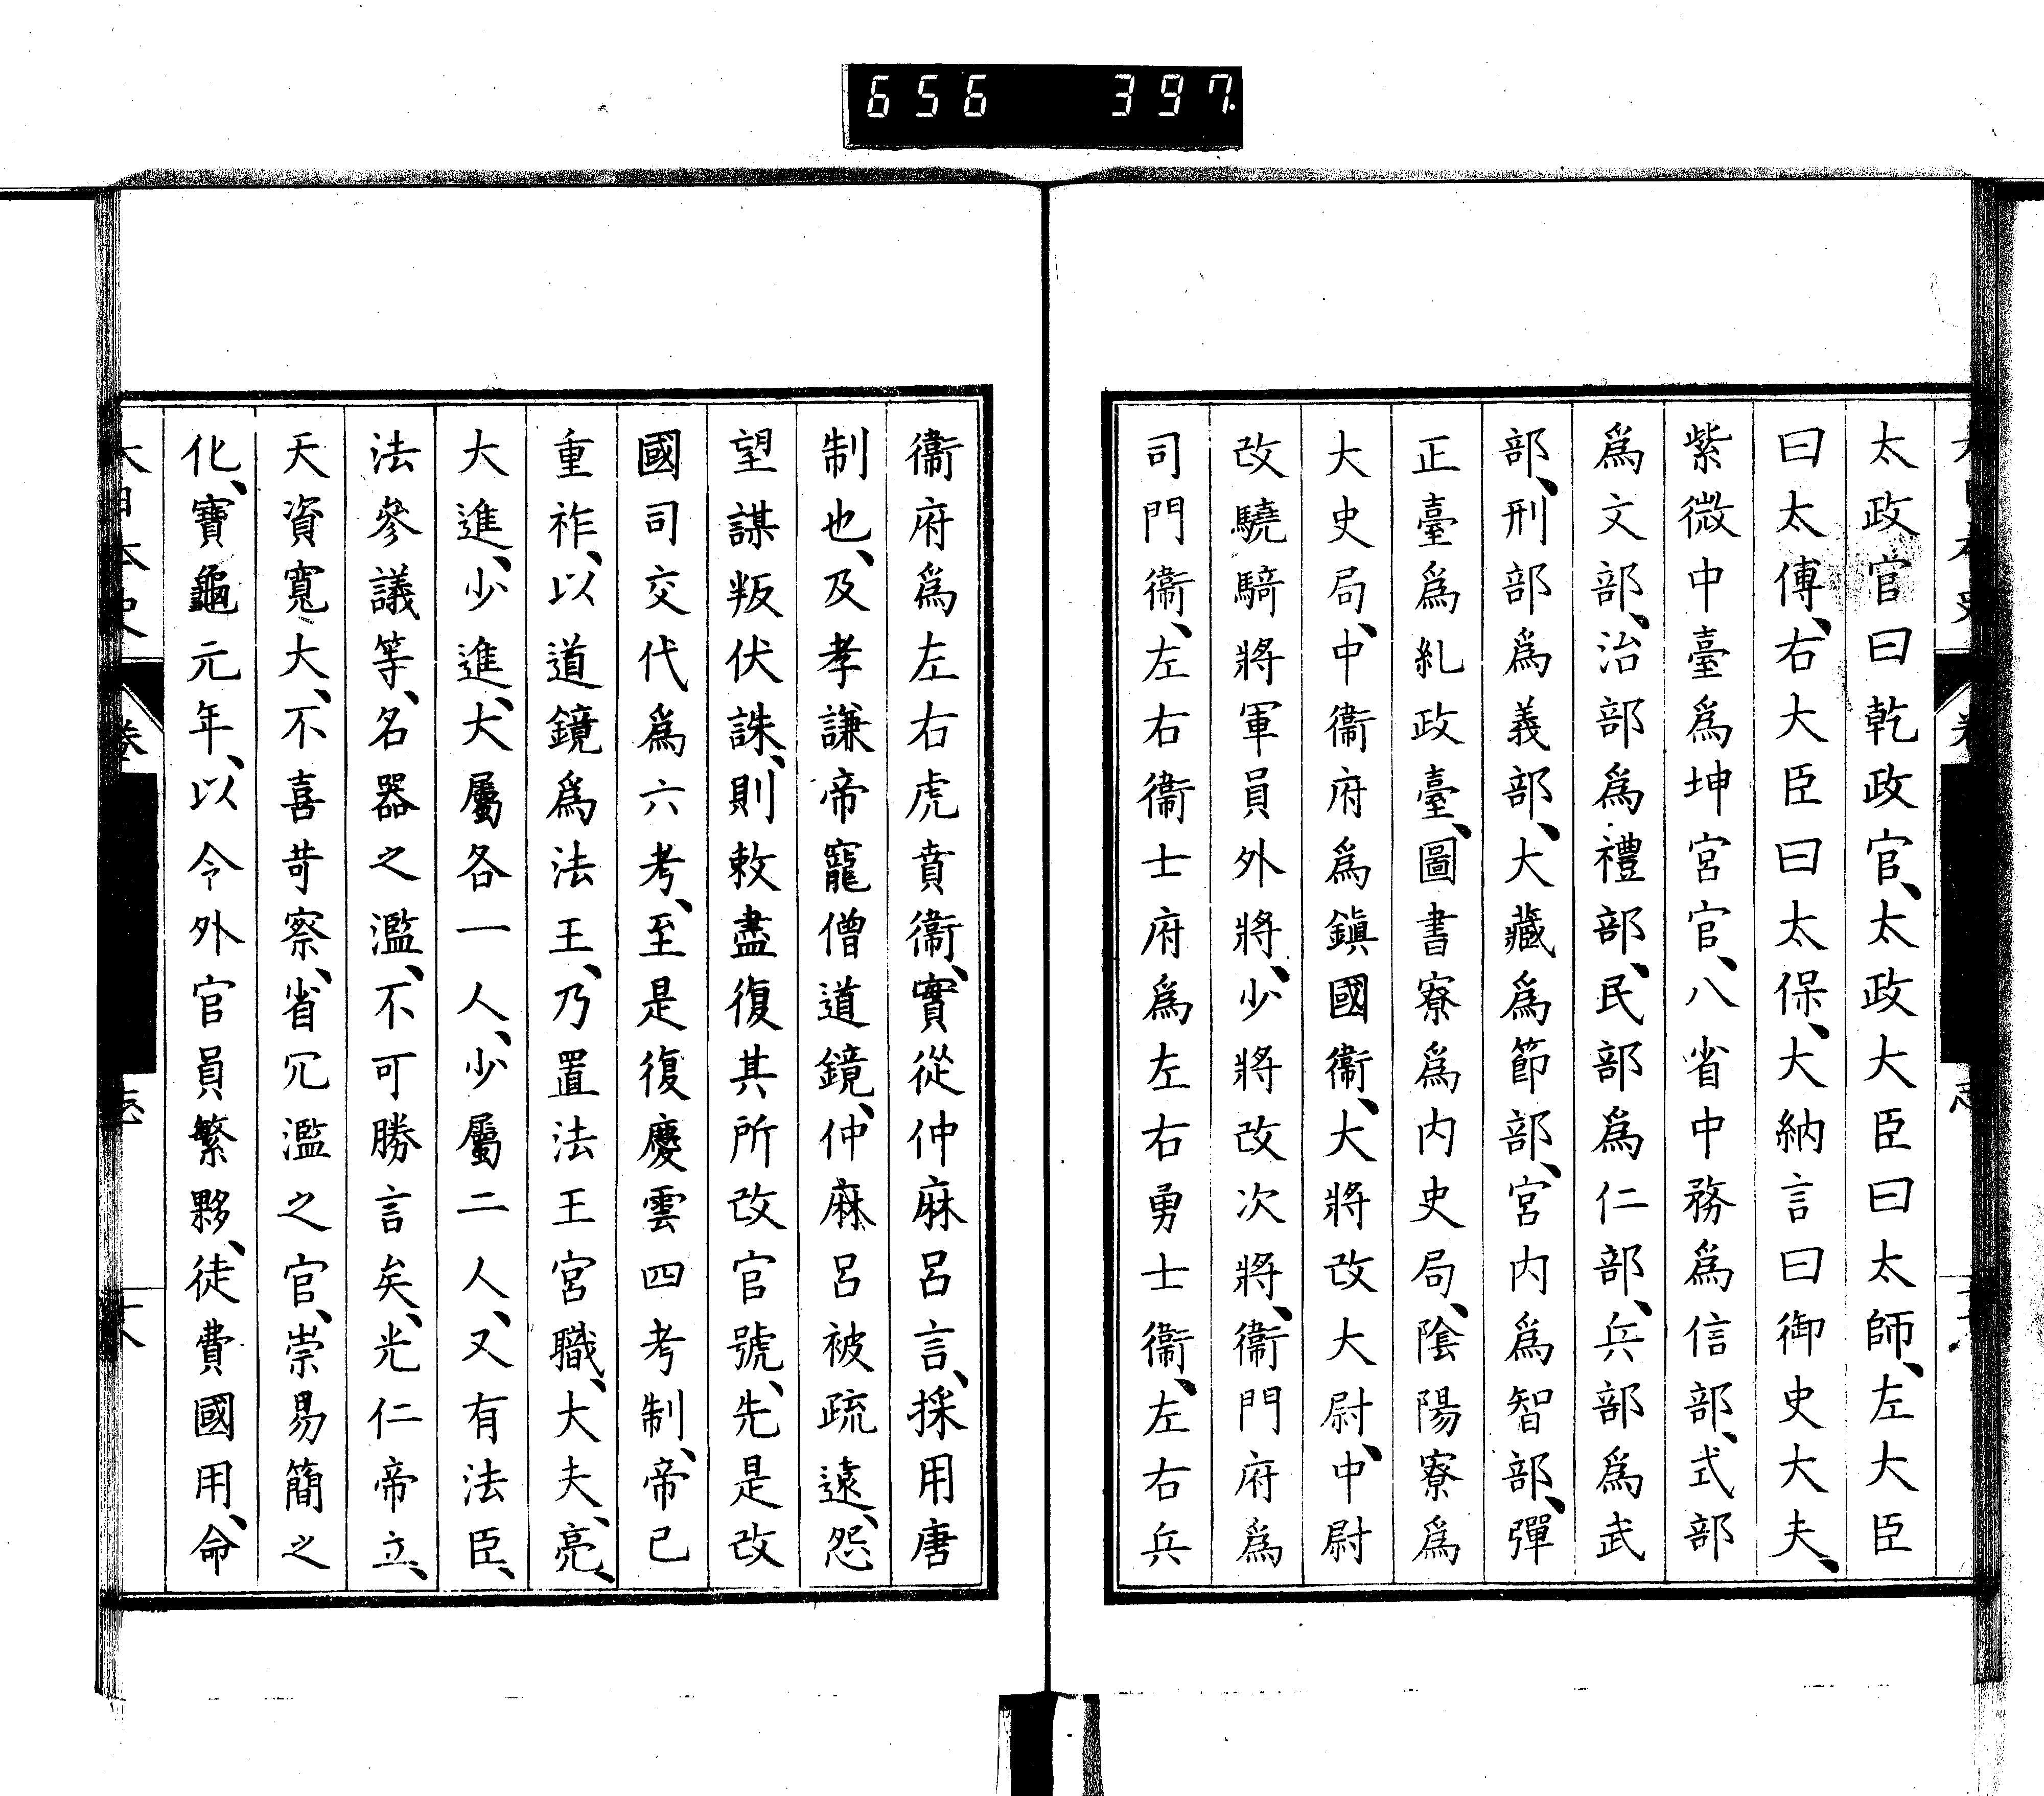 656 397.
太政官曰乾政官、太政大臣曰太師、左大臣
曰太傅、右大臣曰太保、大納言曰御史大夫、
紫微中臺爲坤宮官、八省中務爲信部、式部
爲文部、治部爲禮部、民部爲仁部、兵部爲武
部、刑部爲義部、大藏爲節部、宮内爲智部、彈
正臺爲糺政臺、圖書寮爲内史局、陰陽寮爲
大史局、中衞府爲鎭國衞、大將改大尉、中尉
改驍騎將軍員外將、少將改次將、衞門府爲
司門衞、左右衞士府爲左右勇士衞、左右兵
衞府爲左右虎賁衞、實從仲麻呂言、採用唐
制也、及孝謙帝寵僧道鏡、仲麻呂被疏遠、怨
望謀叛伏誅、則敕盡復其所改官號、先是改
國司交代爲六考、至是復慶雲四考制、帝已
重祚、以道鏡爲法王、乃置法王宮職、大夫、亮、
大進、少進、大屬各一人、少屬二人、又有法臣、
法參議等、名器之濫、不可勝言矣、光仁帝立、
天資寬大、不喜苛察、省冗濫之官、崇易簡之
化、寶龜元年、以令外官員繁夥、徒費國用、命
大日本史